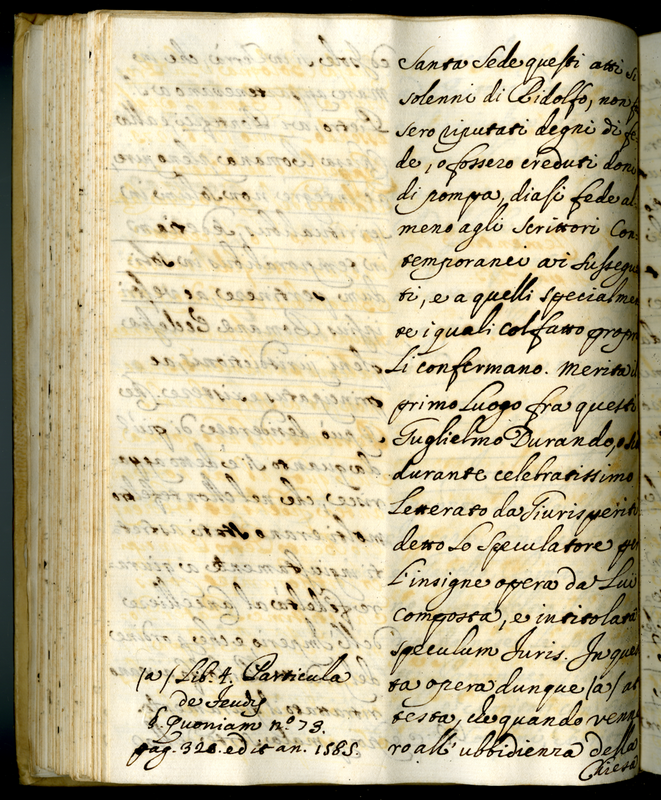 Santa Sede questi atti sì
solenni di Ridolfo, non fos
sero riputati degni di fe-
de, o fossero creduti doni
di pompa, diasi fede al
meno agli scrittori Con-
temporanei ai susseque
ti, e a quelli specialmen
te i quali col fatto propri
Li confermano. Merita il
primo Luogo fra questi
Guglielmo Durando, o sia
durante celebratissimo
Letterato da Giurisperiti
detto Lo Speculatore per
L'insigne opera da Lui
composta, e intitolata
speculum Juris. In ques
ta opera dunque (a) at
testa, che quando venne
ro all'ubbidienza della
Chiesa
(a) Lib. 4. Particula
de feudis
§. Quoniam n.º 73.
pag. 321. edit an. 1585.